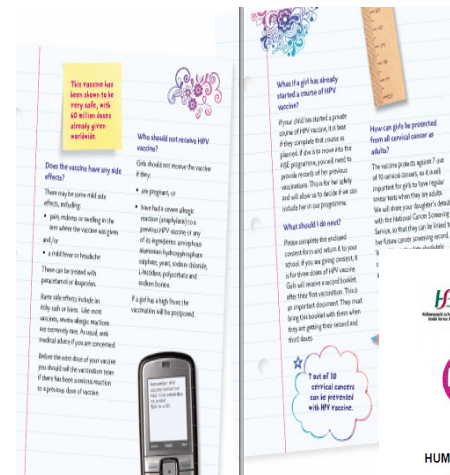 This vaccine has
been shown to be
very safe, with
60 million doses
already given
worldwide.
Does the vaccine have any side
effects?
There may be some mild side
effects, including:
• pain, redness or swelling in the
arm where the vaccine was given
and/or
• a mild fever or headache
These can be treated with
paracetamol or ibuprofen.
Rarer side effects include an
itchy rash or hives. Like most
vaccines, severe allergic reactions
are extremely rare. As usual, seek
medical advice if you are concerned.
Before the next dose of your vaccine
you should tell the vaccination team
if there has been a serious reaction
to a previous dose of vaccine.
Who should not receive HPV
vaccine?
Girls should not receive the vaccine
if they:
• are pregnant, or
• have had a severe allergic
reaction (anaphylaxis) to a
previous HPV vaccine or any
of its ingredients: amorphous
aluminium hydroxyphosphate
sulphate, yeast, sodium chloride,
L-histidine, polysorbate and
sodium borate.
If a girl has a high fever, the
vaccination will be postponed.
What if a girl has already
started a course of HPV
vaccine?
If your child has started a private
course of HPV vaccine, it is best
if they complete that course as
planned. If she is to move into the
HSE programme, you will need to
provide records of her previous
vaccinations. This is for her safety
and will allow us to decide if we can
include her in our programme.
What should I do next?
Please complete the enclosed
consent form and return it to your
school. If you are giving consent, it
is for three doses of HPV vaccine.
Girls will receive a record booklet
after their first vaccination. This is
an important document. They must
bring this booklet with them when
they are getting their second and
third doses.
7 out of 10
cervical cancers
can be prevented
with HPV vaccine.
How can girls be protected
from all cervical cancer as
adults?
The vaccine protects against 7 out
of 10 cervical cancers, so it is still
important for girls to have regular
smear tests when they are adults.
We will share your daughter's details
with the National Cancer Screening
Service, so that they can be linked to
her future cancer screening record.
HUM